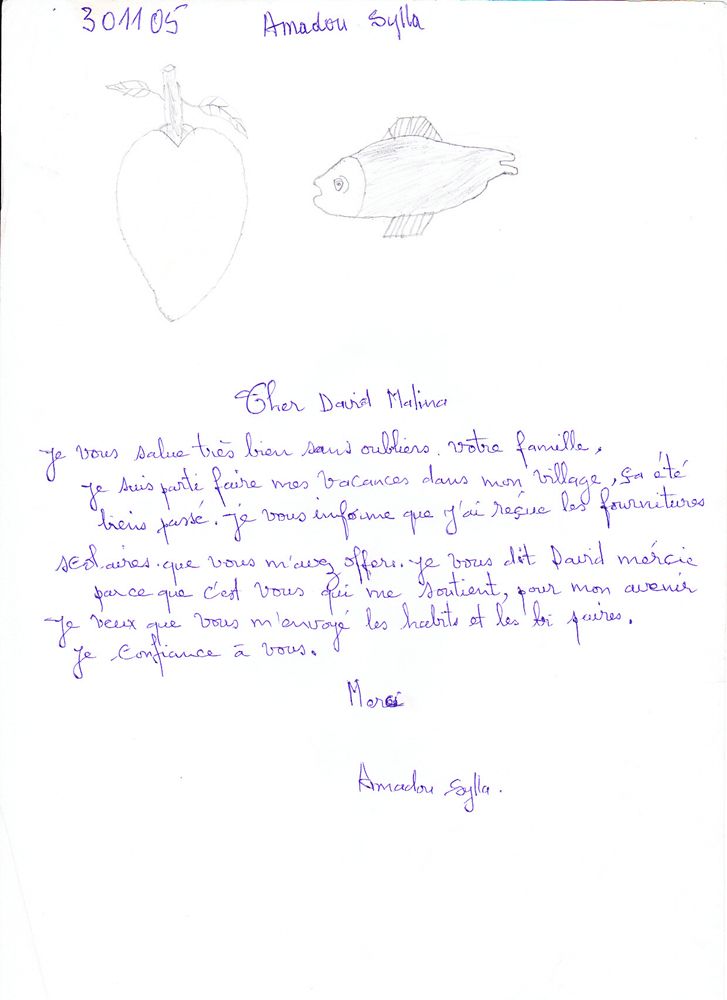 301105 Amadou Sylla
Cher David Malina
Je vous salue très bien sans oubliers. votre famille,
Je suis parti faire mes vacances dans mon village, sa été
biens passé. Je vous informe que j'ai reçue les fournitures
scolaires que vous m'avez offers. Je vous dit David mércie
parce que c'est vous qui me soutient, pour mon avenir
Je veux que vous m'envoyé les habits et les
Je Confiance à vous.
Merci
Amadou Sylla.